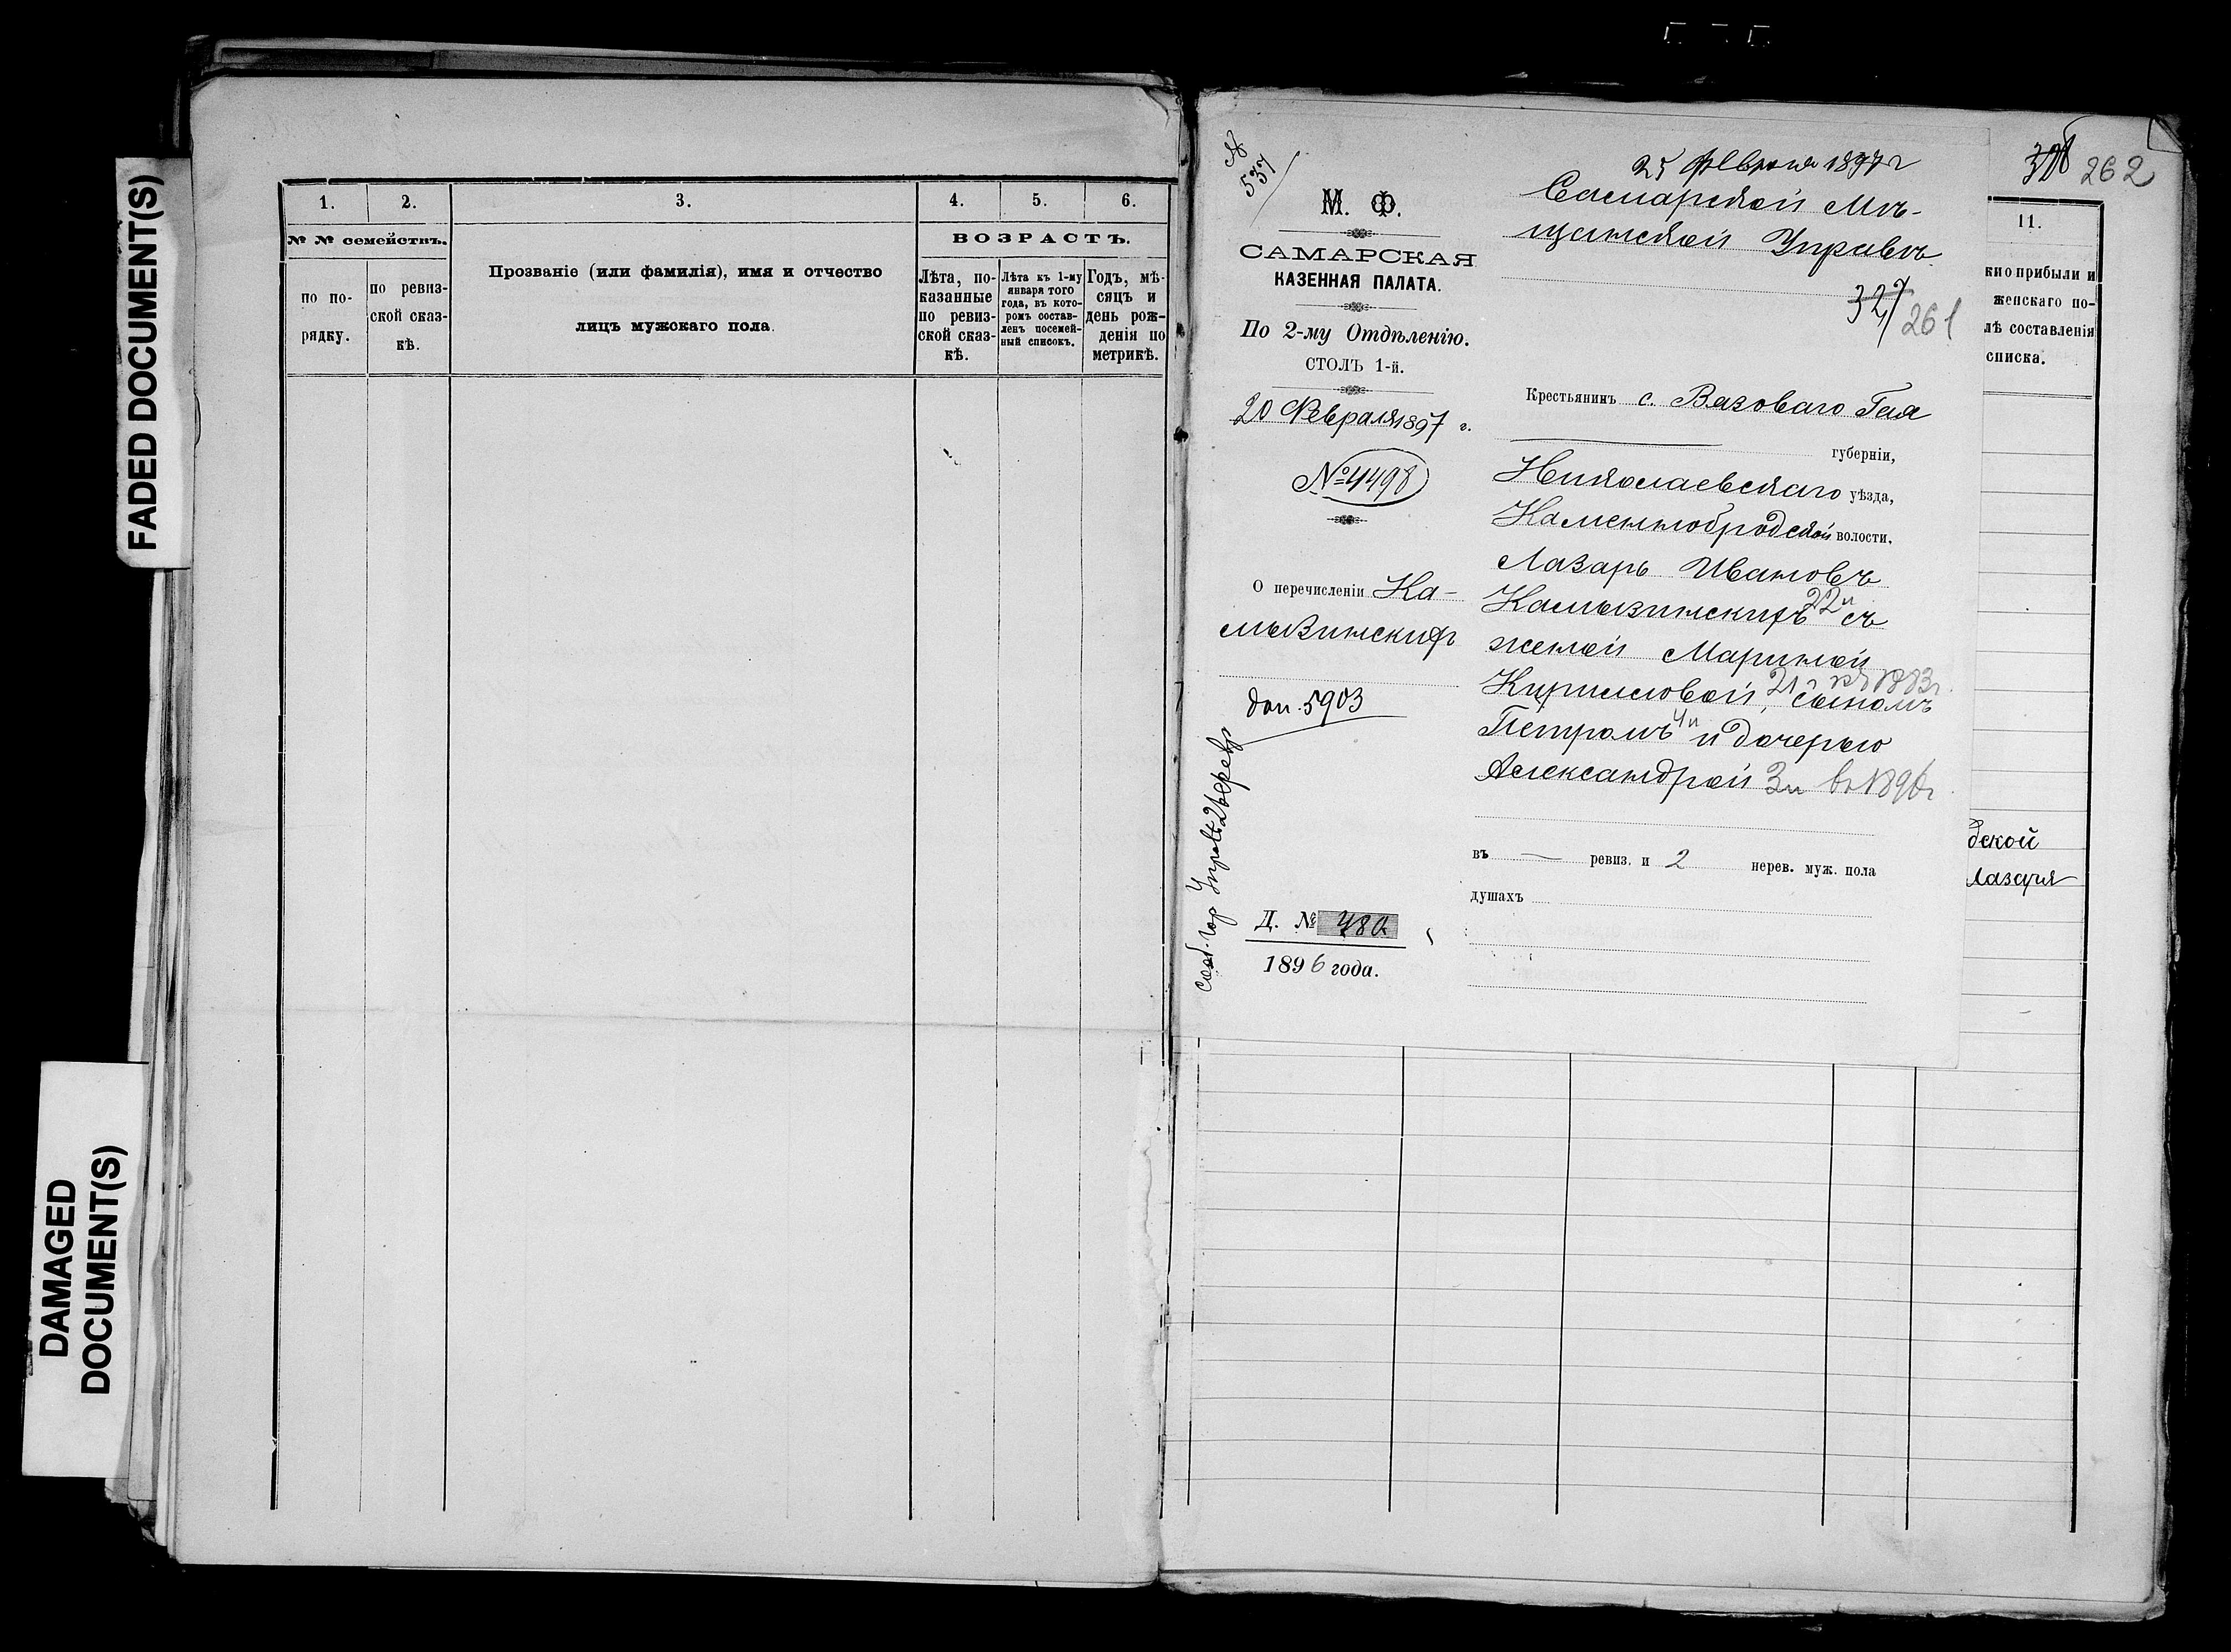 FADED DOCUMENT(S)
DAMAGED
DOCUMENT(S)
1.
2.
3.
4.
5.
6.
№ № семействъ.
ВОЗРАСТЪ.
по по-
рядку.
по ревиз-
ской сказ-
кѣ.
Прозваніе (или фамилія), имя и отчество
лицъ мужскаго пола.
Лѣта, по-
казанные
по ревиз-
ской сказ-
кѣ.
Лѣта къ 1-му
января того
года, въ кото-
ромъ состав-
ленъ посемей-
ный списокъ.
Годъ, мѣ-
сяцъ и
день рож-
денія по
метрикѣ.
№
537
М. Ф.
САМАРСКАЯ
КАЗЕННАЯ ПАЛАТА.
По 2-му Отдѣленію.
СТОЛЪ 1-й.
20 Февраля 1897 г.
№ 4498
О перечисленіи Ка-
мызинскихъ
доп. 5903
Д. № 480
1896 года.
25 февраля 1897 г
Самарской Мѣ-
щанской Управѣ
327
261
Крестьянинъ с. Вязоваго Гая
губерніи,
Николаевскаго уѣзда,
Каменнобродской волости,
Лазарь Ивановъ
Камызинскихъ 22 л съ
женой Мариной
Кирилловой, 21 г 1883 г. сыномъ
Петромъ 4 л и дочерью
Александрой 3 л въ 1896 г
въ — ревиз. и 2 нерев. муж. пола
душахъ
262
11.
кно прибыли и
женскаго по-
лѣ составленія
списка.
дской
Лазаря